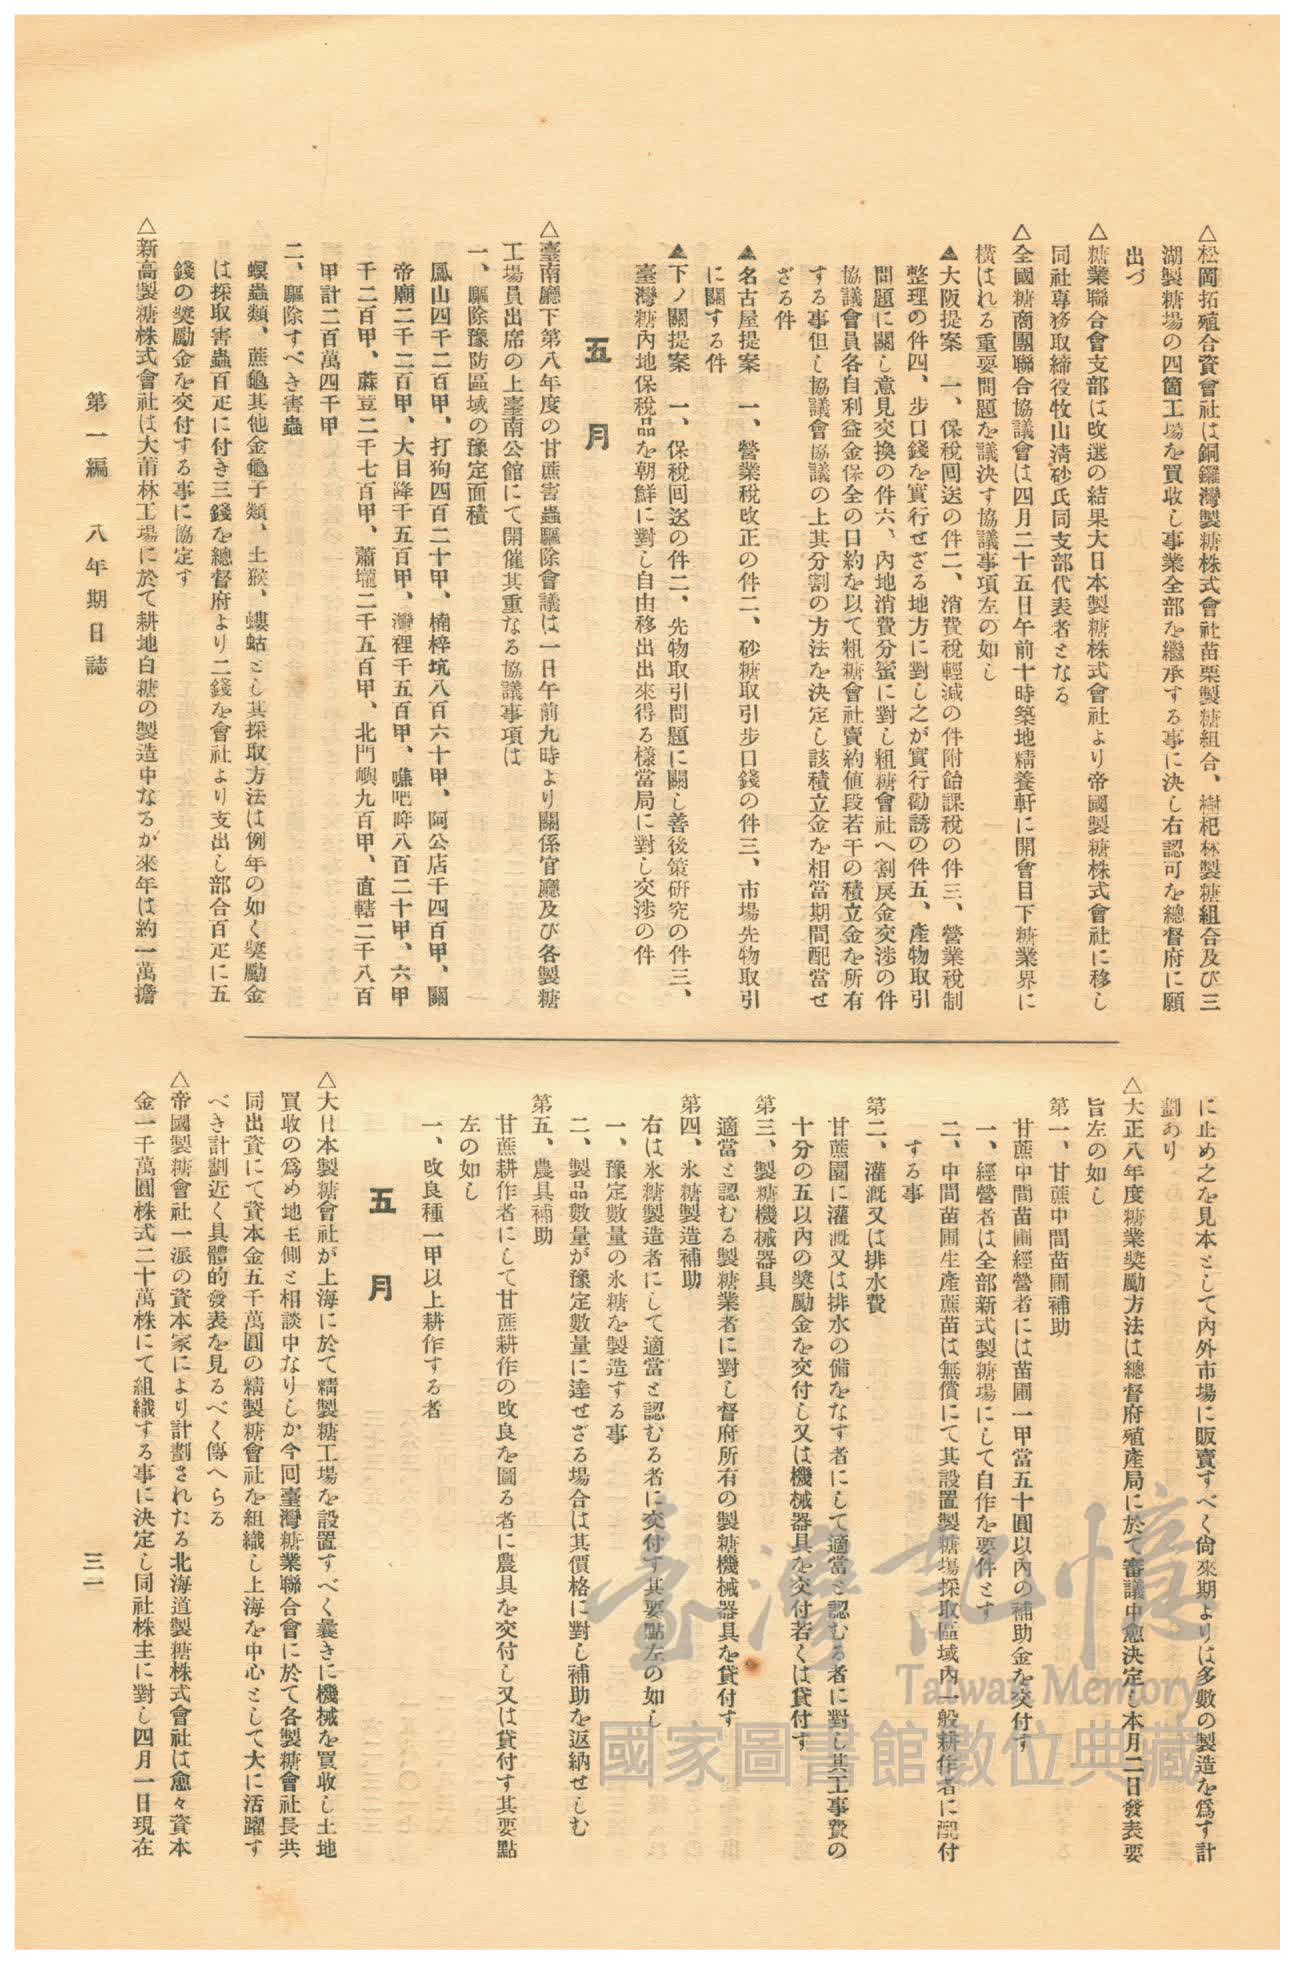 △松岡拓殖合資會社は銅鑼灣製糖株式會社苗栗製糖組合、樹杞林製糖組合及び三
湖製糖場の四箇工場を買收し事業全部を繼承する事に決し右認可を總督府に願
出づ
△糖業聯合會支部は改選の結果大日本製糖株式會社より帝國製糖株式會社に移し
同社專務取締役牧山淸砂氏同支部代表者となる
△全國糖商團聯合協議會は四月二十五日午前十時築地精養軒に開會目下糖業界に
橫はれる重要問題を議決す協議事項左の如し
▲大阪提案 一、保稅囘送の件二、消費稅輕減の件附飴課稅の件三、營業稅制
整理の件四、步口錢を實行せざる地方に對し之が實行勸誘の件五、產物取引
問題に關し意見交換の件六、內地消費分蜜に對し粗糖會社へ割戾金交涉の件
協議會員各自利益金保全の口約を以て粗糖會社賣約値段若干の積立金を所有
する事但し協議會協議の上其分割の方法を決定し該積立金を相當期間配當せ
ざる件
▲名古屋提案 一、營業稅改正の件二、砂糖取引步口錢の件三、市場先物取引
に關する件
▲下ノ關提案 一、保稅囘送の件二、先物取引問題に關し善後策硏究の件三、
臺灣糖內地保稅品を朝鮮に對し自由移出出來得る樣當局に對し交涉の件
五月
△臺南廳下第八年度の甘蔗害蟲驅除會議は一日午前九時より關係官廳及び各製糖
工場員出席の上臺南公館にて開催其重なる協議事項は
一、驅除豫防區域の豫定面積
鳳山四千二百甲、打狗四百二十甲、楠梓坑八百六十甲、阿公店千四百甲、關
帝廟二千二百甲、大目降千五百甲、灣裡千五百甲、噍吧哖八百二十甲、六甲
千二百甲、蔴荳二千七百甲、蕭壠二千五百甲、北門嶼九百甲、直轄二千八百
甲計二百萬四千甲
二、驅除すべき害蟲
螟蟲類、蔗龜其他金龜子類、土猴、螻蛄とし其採取方法は例年の如く獎勵金
は採取害蟲百疋に付き三錢を總督府より二錢を會社より支出し部合百疋に五
錢の獎勵金を交付する事に協定す
△新高製糖株式會社は大莆林工場に於て耕地白糖の製造中なるが來年は約一萬擔
に止め之を見本として內外市場に販賣すべく尙來期よりは多數の製造を爲す計
劃あり
△大正八年度糖業獎勵方法は總督府殖產局に於て審議中愈決定し本月二日發表要
旨左の如し
第一、甘蔗中間苗圃補助
甘蔗中間苗圃經營者には苗圃一甲當五十圓以內の補助金を交付す
一、經營者は全部新式製糖場にして自作を要件とす
二、中間苗圃生產蔗苗は無償にて其設置製糖場採取區域內一般耕作者に配付
する事
第二、灌漑又は排水費
甘蔗園に灌漑又は排水の備をなす者にして適當と認むる者に對し其工事費の
十分の五以內の獎勵金を交付し又は機械器具を交付若くは貸付す
第三、製糖機械器具
適當と認むる製糖業者に對し督府所有の製糖機械器具を貸付す
第四、氷糖製造補助
右は氷糖製造者にして適當と認むる者に交付す其要點左の如し
一、豫定數量の氷糖を製造する事
二、製品數量が豫定數量に達せざる場合は其價格に對し補助を返納せしむ
第五、農具補助
甘蔗耕作者にして甘蔗耕作の改良を圖る者に農具を交付し又は貸付す其要點
左の如し
一、改良種一甲以上耕作する者
五月
△大日本製糖會社が上海に於て精製糖工場を設置すべく曩きに機械を買收し土地
買收の爲め地主側と相談中なりしが今囘臺灣糖業聯合會に於て各製糖會社長共
同出資にて資本金五千萬圓の精製糖會社を組織し上海を中心として大に活躍す
べき計劃近く具體的發表を見るべく傳へらる
△帝國製糖會社一派の資本家により計劃されたる北海道製糖株式會社は愈々資本
金一千萬圓株式二十萬株にて組織する事に決定し同社株主に對し四月一日現在
第一編 八年期日誌
三一
臺灣記憶
Taiwan Memory
國家圖書館數位典藏